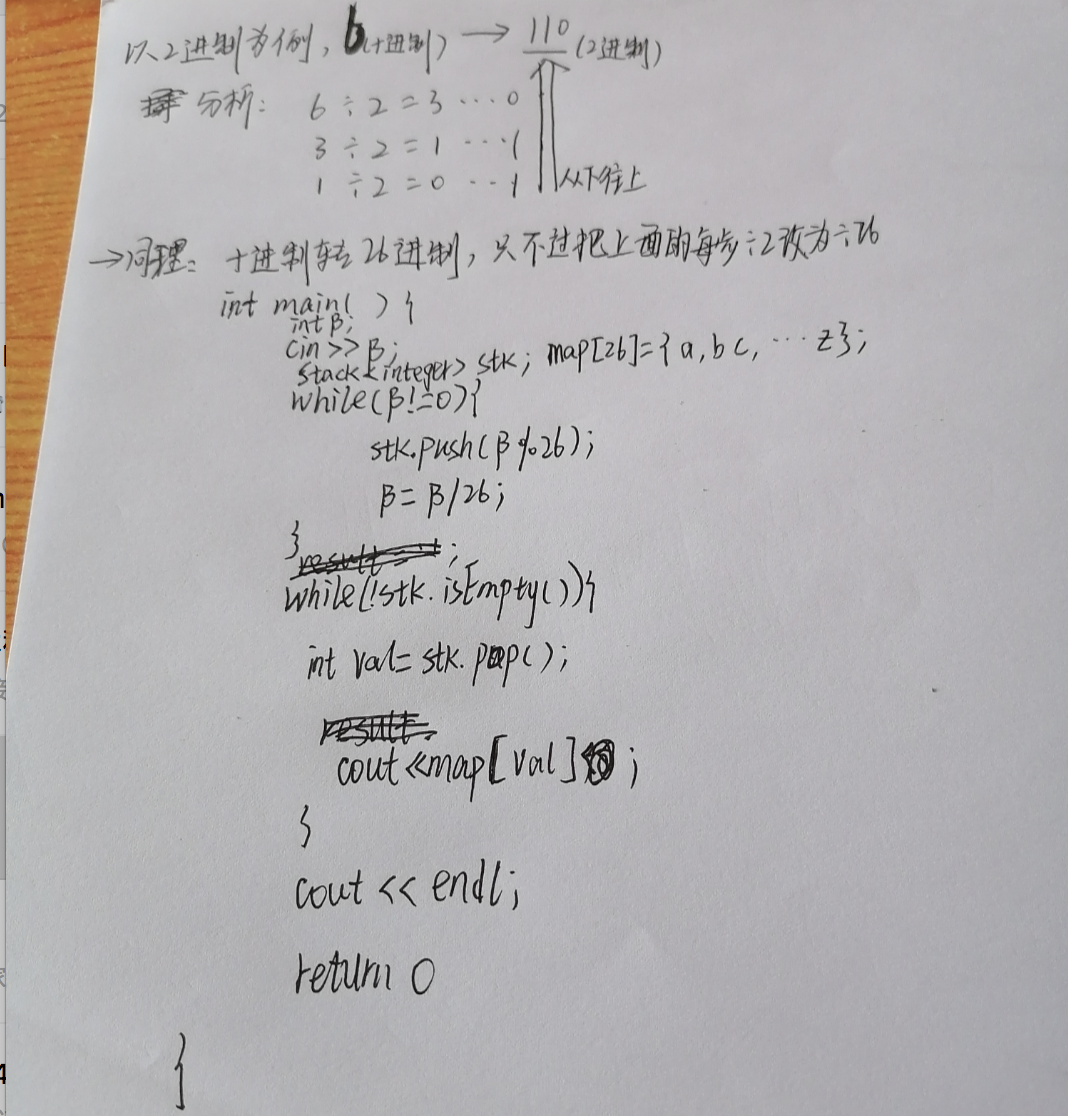 以2进制为例，6(十进制) → 110 (2进制)
分析： 6 ÷ 2 = 3 ··· 0
3 ÷ 2 = 1 ··· 1
1 ÷ 2 = 0 ··· 1 从下往上
→同理： 十进制转26进制，只不过把上面的每步÷2改为÷26
int main( ) {
int β;
cin >> β;
stack<integer> stk; map[26]={a,b c, ··· z};
while(β!=0){
stk.push(β%26);
β= β/26;
}
result ;
while(!stk.isEmpty()){
int val= stk.pop();
result.
cout <<map[val] ;
}
cout << endl;
return 0
}